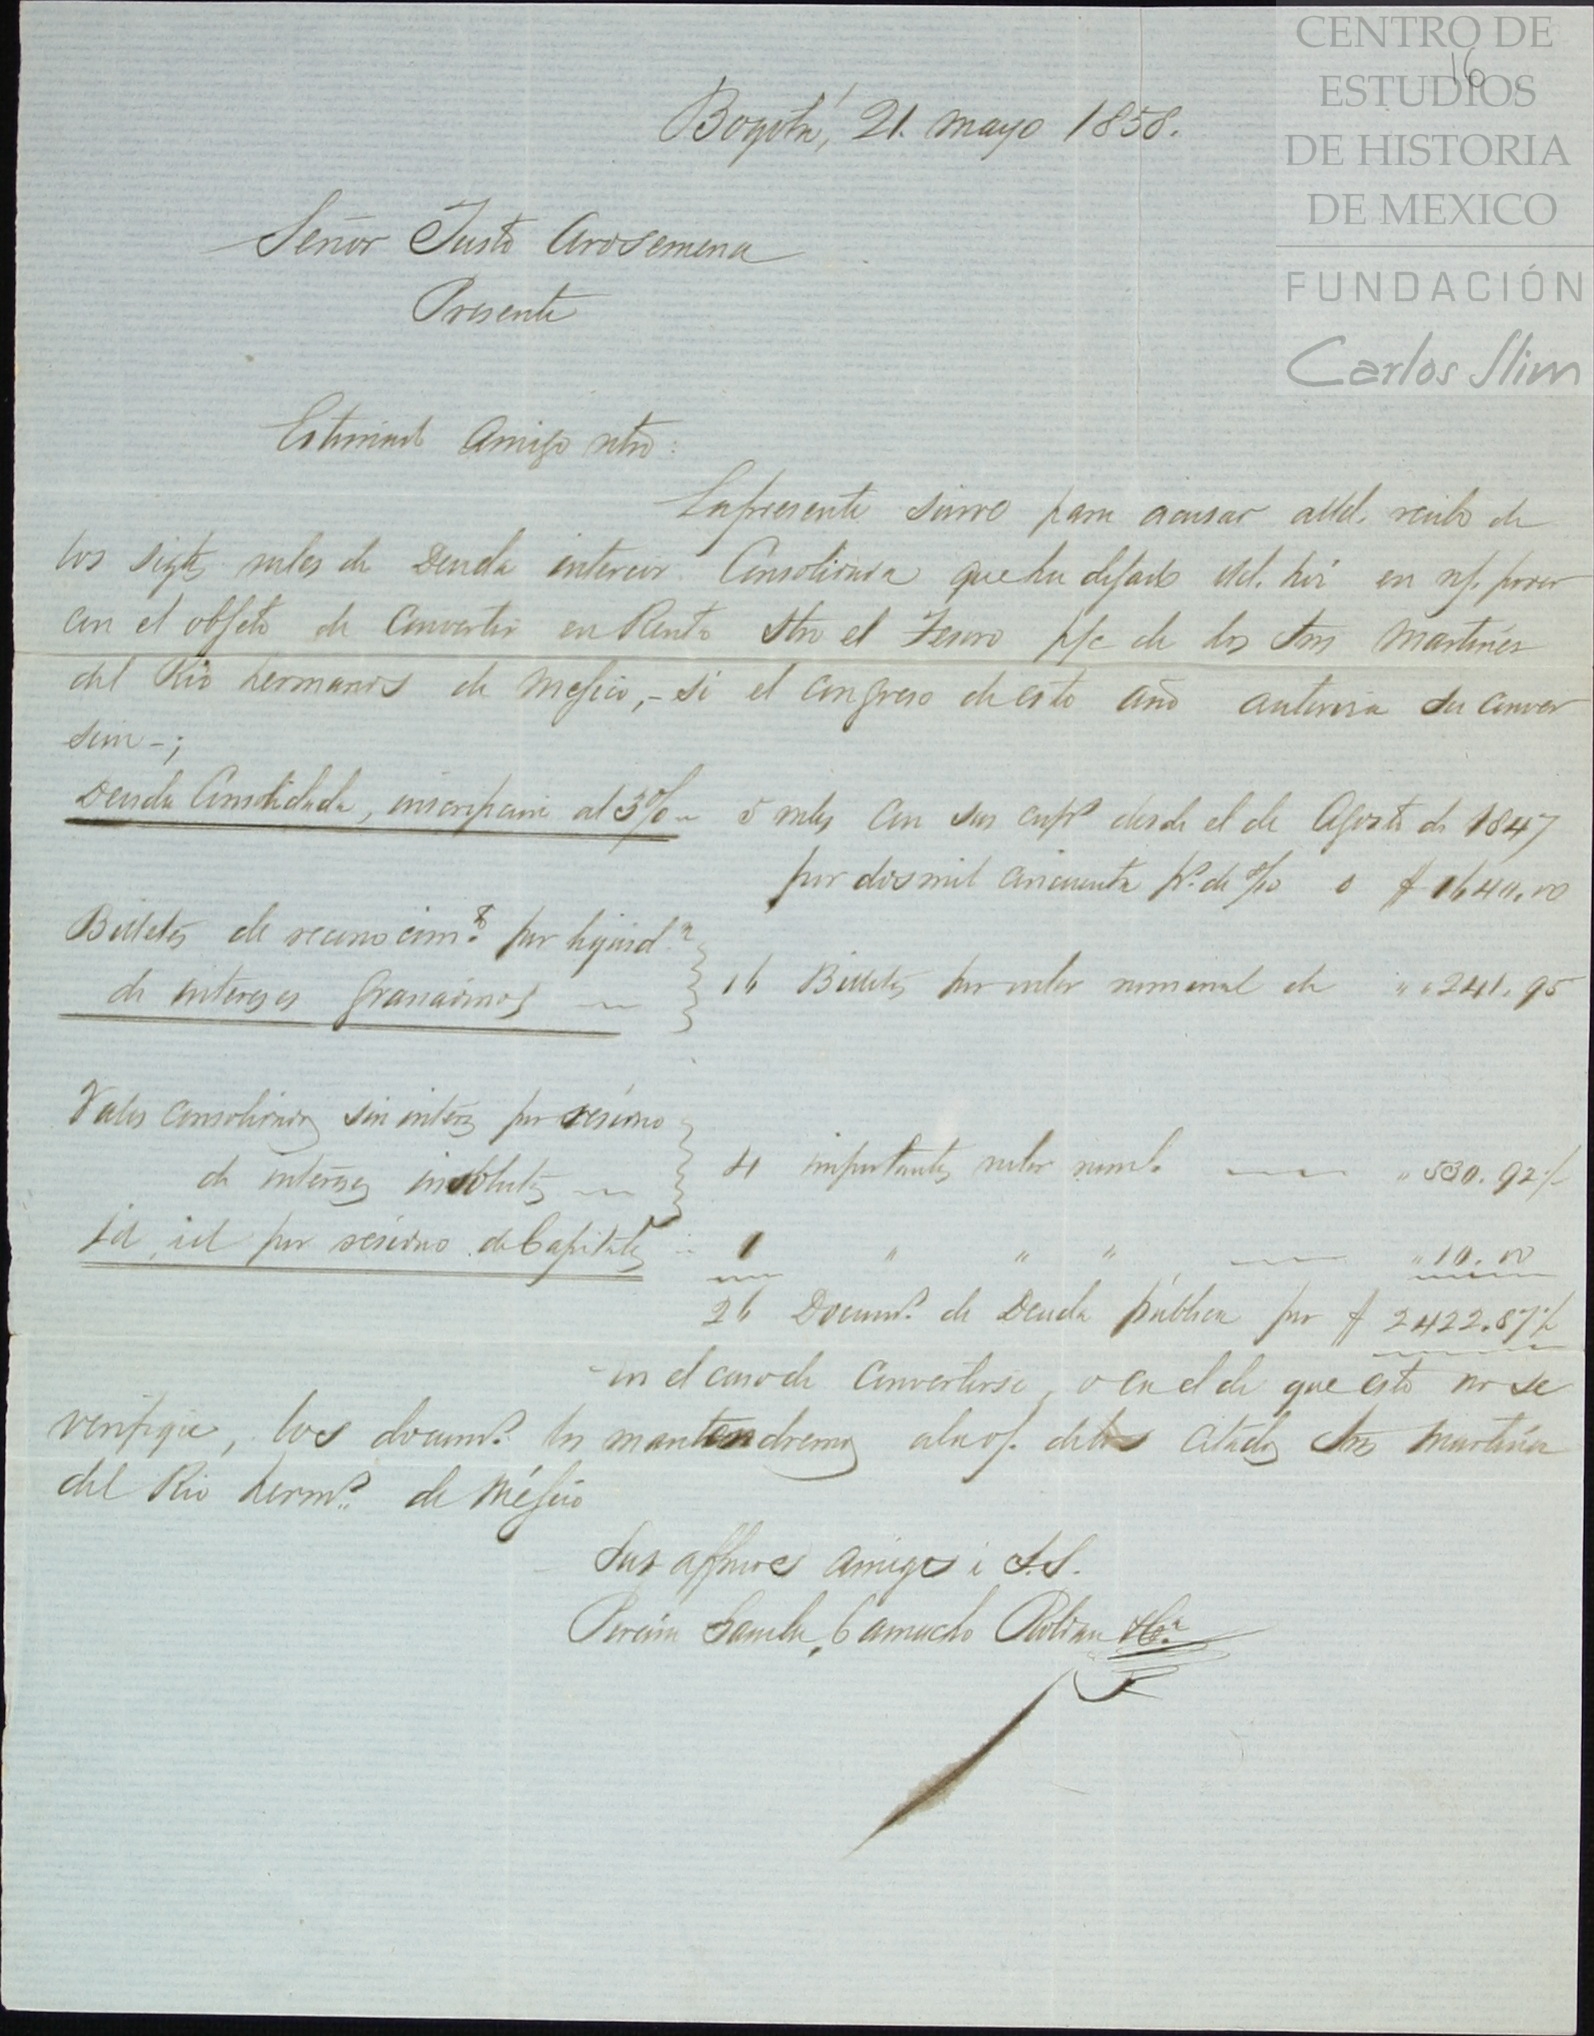 CENTRO DE
ESTUDIOS
DE HISTORIA
DE MEXICO
FUNDACIÓN
Carlos Slim
16
Bogotá, 21. mayo 1858.
Señor Justo Arosemena
Presente
Estimado amigo ntro:
La presente sirve para acusar a Ud. recibo de
los sigtes vales de Deuda interior Consolidada que ha dejado Ud. hoi en nf. poder
con el objeto de convertir en Renta sbre el Tesoro p/c de los Sres Martinez
del Rio hermanos de Mejico, - si el congreso de este año autoriza su conver
sion -;
Deuda Consolidada, inscripcion al 3% 5 vales con sus cups desde el de Agosto de 1847
por dos mil cincuenta ps. de 8/10 o $ 1640.00
Billetes de reconocimto por liquidn
de intereses granadinos 16 Billetes por valor nominal de " " 241.95
Vales consolidados sin interes por residuo
de intereses insolutos 4 importantes valor noml. " 530.92 ½
id id por residuo de Capitales 1 " " " " 10.00
26 Documtos de Deuda pública por $ 2422.87 ½
en el caso de convertirse, o en el de que esto no se
verifique, los documtos los mantendremos a la of. de los citados Sres Martinez
del Rio hermos de Méjico
Sus affmos amigos i S.S.
Pereira Gamba, Camacho Roldan & Ca